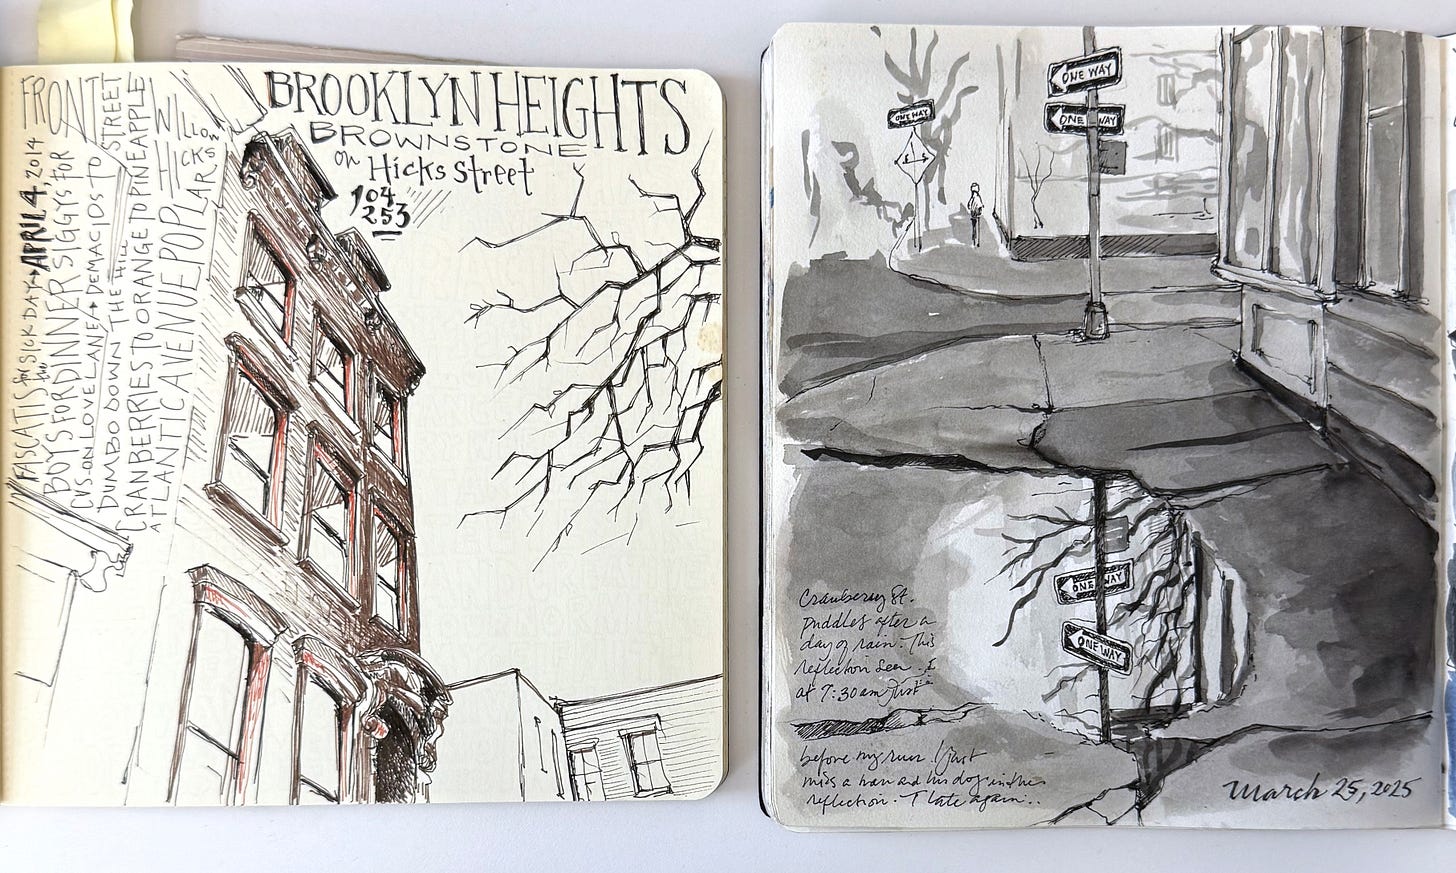 FRONT STREET
WILLOW
HICKS
BROOKLYN HEIGHTS
BROWNSTONE
on Hicks Street
104
253
FASCATIS for SICK DAY → APRIL 4, 2014
BOYS FOR DINNER SIGGYS FOR
CVS-ON LOVE LANE → DEMACIOS TO
DUMBO DOWN THE HILL
CRANBERRIES TO ORANGE TO PINEAPPLE
ATLANTIC AVENUE POPLARS
ONE WAY
ONE WAY
ONE WAY
ONE WAY
ONE WAY
Cranberry St.
puddles after a
day of rain. This
reflection seen
at 7:30 am just
before my run. I just
miss a man and his dog in the
reflection. Late again..
March 25, 2025